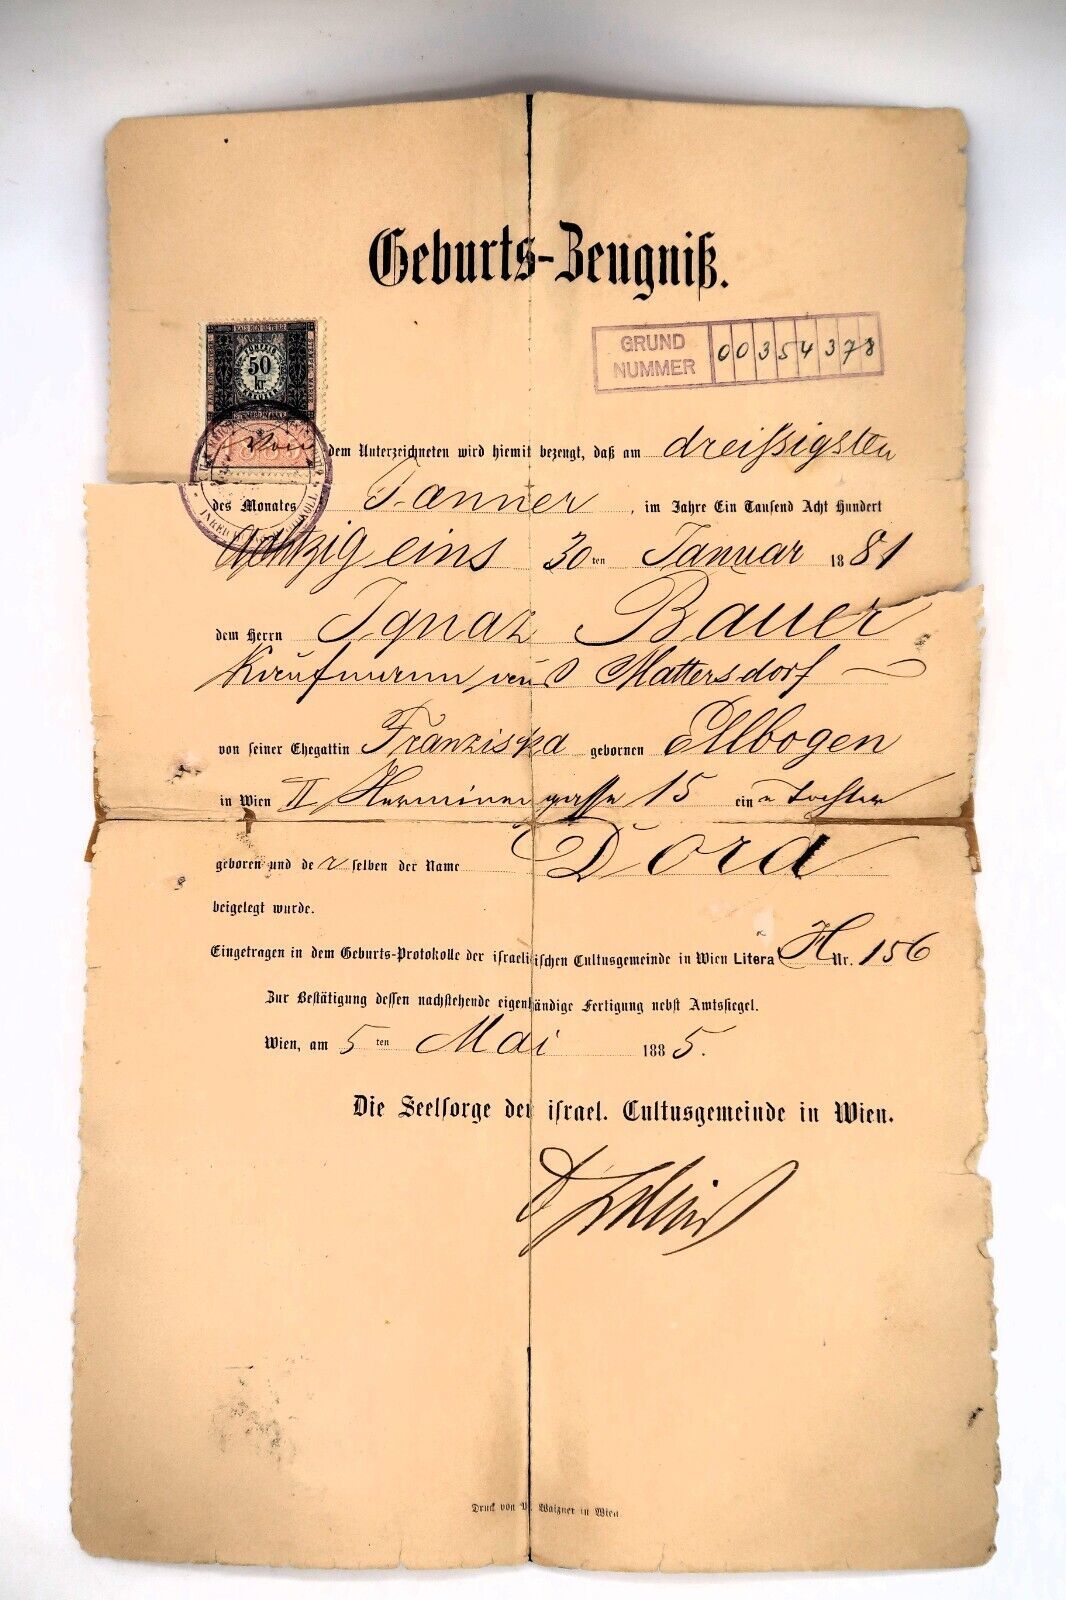 Geburts-Zeugniß.
50
kr
GRUND
NUMMER
00354378
dem Unterzeichneten wird hiemit bezeugt, daß am dreißigsten
des Monates Jänner, im Jahre Ein Tausend Acht Hundert
achtzig eins 30ten Januar 1881
dem Herrn Ignaz Bauer
Kaufmann aus Mattersdorf
von seiner Ehegattin Franziska gebornen Ellbogen
in Wien II Herminengasse 15 eine Tochter
geboren und der selben der Name Dora
beigelegt wurde.
Eingetragen in dem Geburts-Protokolle der israelitischen Cultusgemeinde in Wien Litera H Nr. 156
Zur Bestätigung dessen nachstehende eigenhändige Fertigung nebst Amtssiegel.
Wien, am 5ten Mai 1885.
Die Seelsorge der israel. Cultusgemeinde in Wien.
Druck von Waizner in Wien